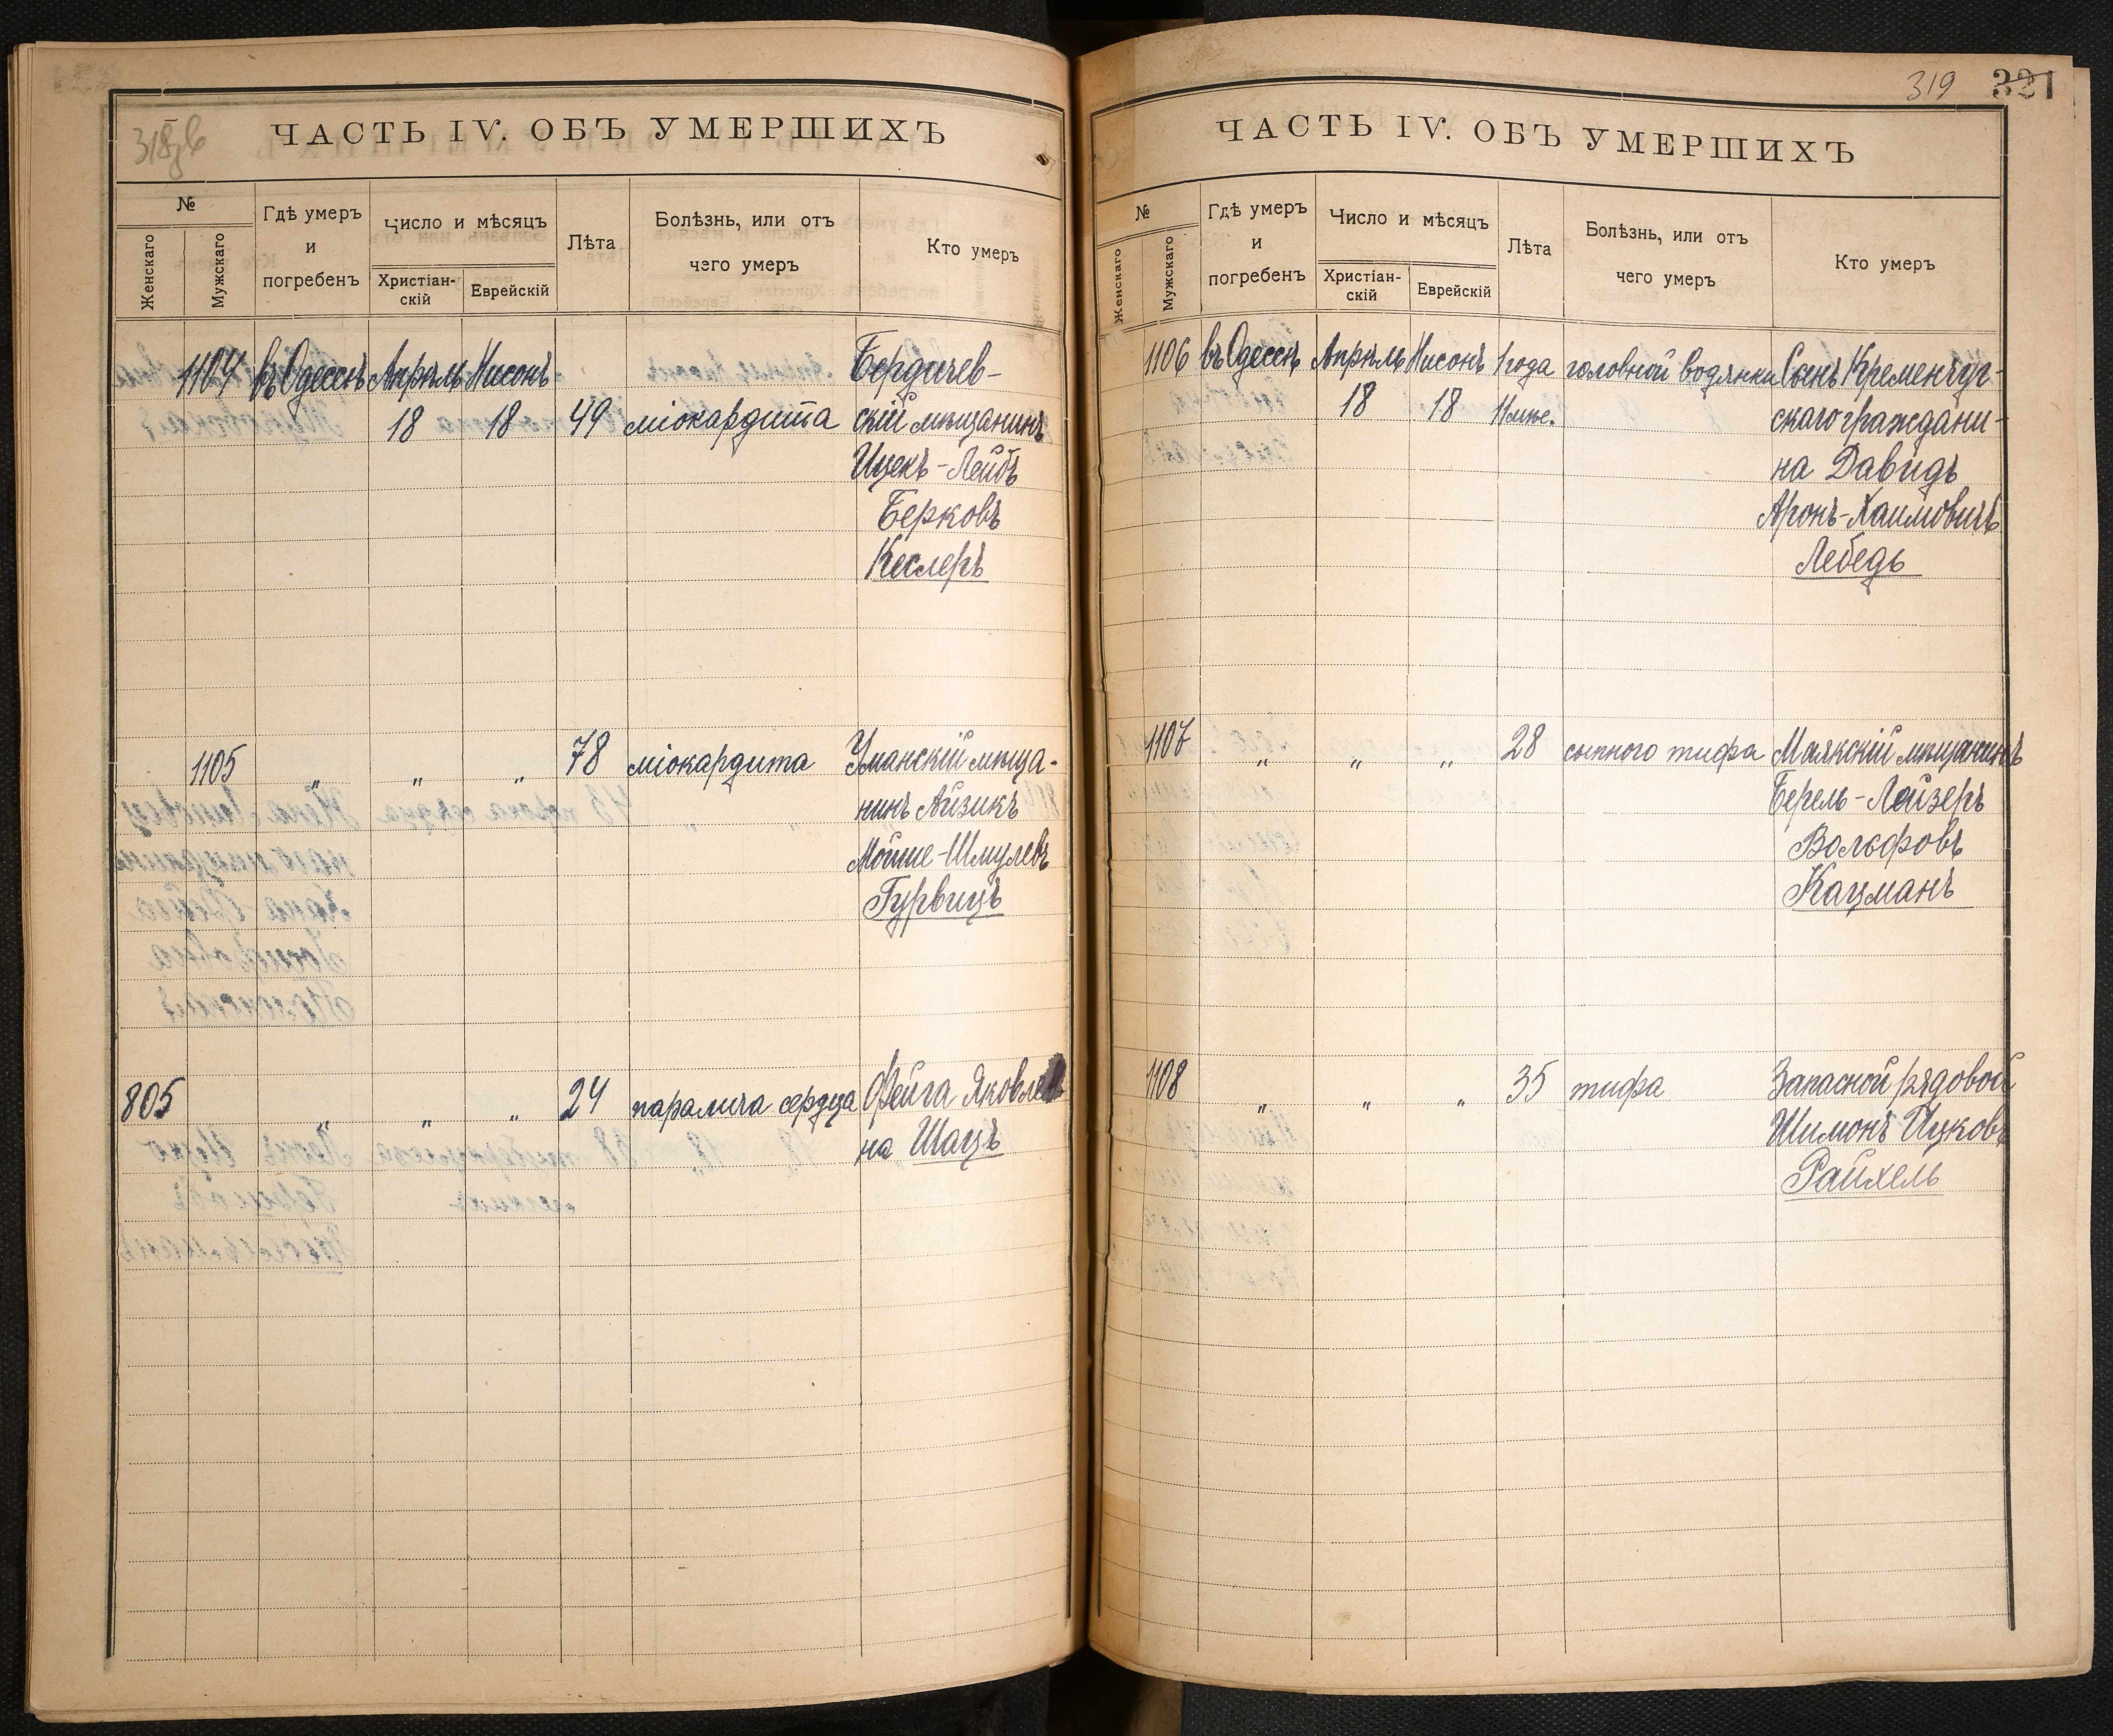 ЧАСТЬ IV. ОБЪ УМЕРШИХЪ
№
Женскаго
Мужскаго
Гдѣ умеръ
и
погребенъ
Число и мѣсяцъ
Христіан-
скій
Еврейскій
Лѣта
Болѣзнь, или отъ
чего умеръ
Кто умеръ
1104 въ Одессѣ Апрѣль Нисонъ Бердичев-
18 18 49 міокардита скій мѣщанинъ
Ицекъ-Лейбъ
Берковъ
Кеслеръ
1105 „ „ „ 78 міокардита Уманскій мѣща-
нинъ Айзикъ
Мойше-Шмулевъ
Гурвицъ
805 „ „ „ 24 паралича сердца Фейга Яковлев
на Шацъ
319 321
ЧАСТЬ IV. ОБЪ УМЕРШИХЪ
№
Женскаго
Мужскаго
Гдѣ умеръ
и
погребенъ
Число и мѣсяцъ
Христіан-
скій
Еврейскій
Лѣта
Болѣзнь, или отъ
чего умеръ
Кто умеръ
1106 въ Одессѣ Апрѣль Нисонъ 1 года головной водянки Сынъ Кременчуг-
18 18 скаго граждани-
на Давидъ
Аронъ-Хаимовичъ
Лебедь
1107 „ „ „ 28 сыпного тифа Маякскій мѣщанинъ
Берель-Лейзеръ
Вольфовъ
Кацманъ
1108 „ „ „ 35 тифа Запасной рядовой
Шимонъ Ицковъ
Райхель